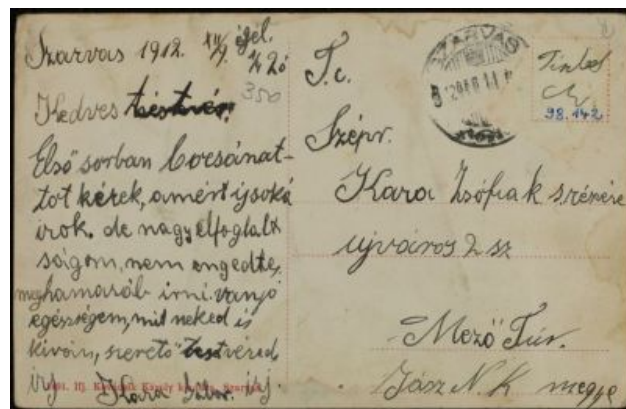 Szarvas 1912. XII/9. éjjel.
½ 20
350
Kedves testvér!
Első sorban bocsánat-
tot kérek, amért ijsoká
irok. de nagy elfoglalt
ságom, nem engedte,
meghamaráb irni. van jó
egésségem, mit neked is
kiván, szerető testvéred
irj Kara Gábor. irj.
T.c.
Szépr.
Kara Zsófiak szrésére
ujváros 2 sz
Mező Túr.
Jász N. K megye
SZARVAS
98.142